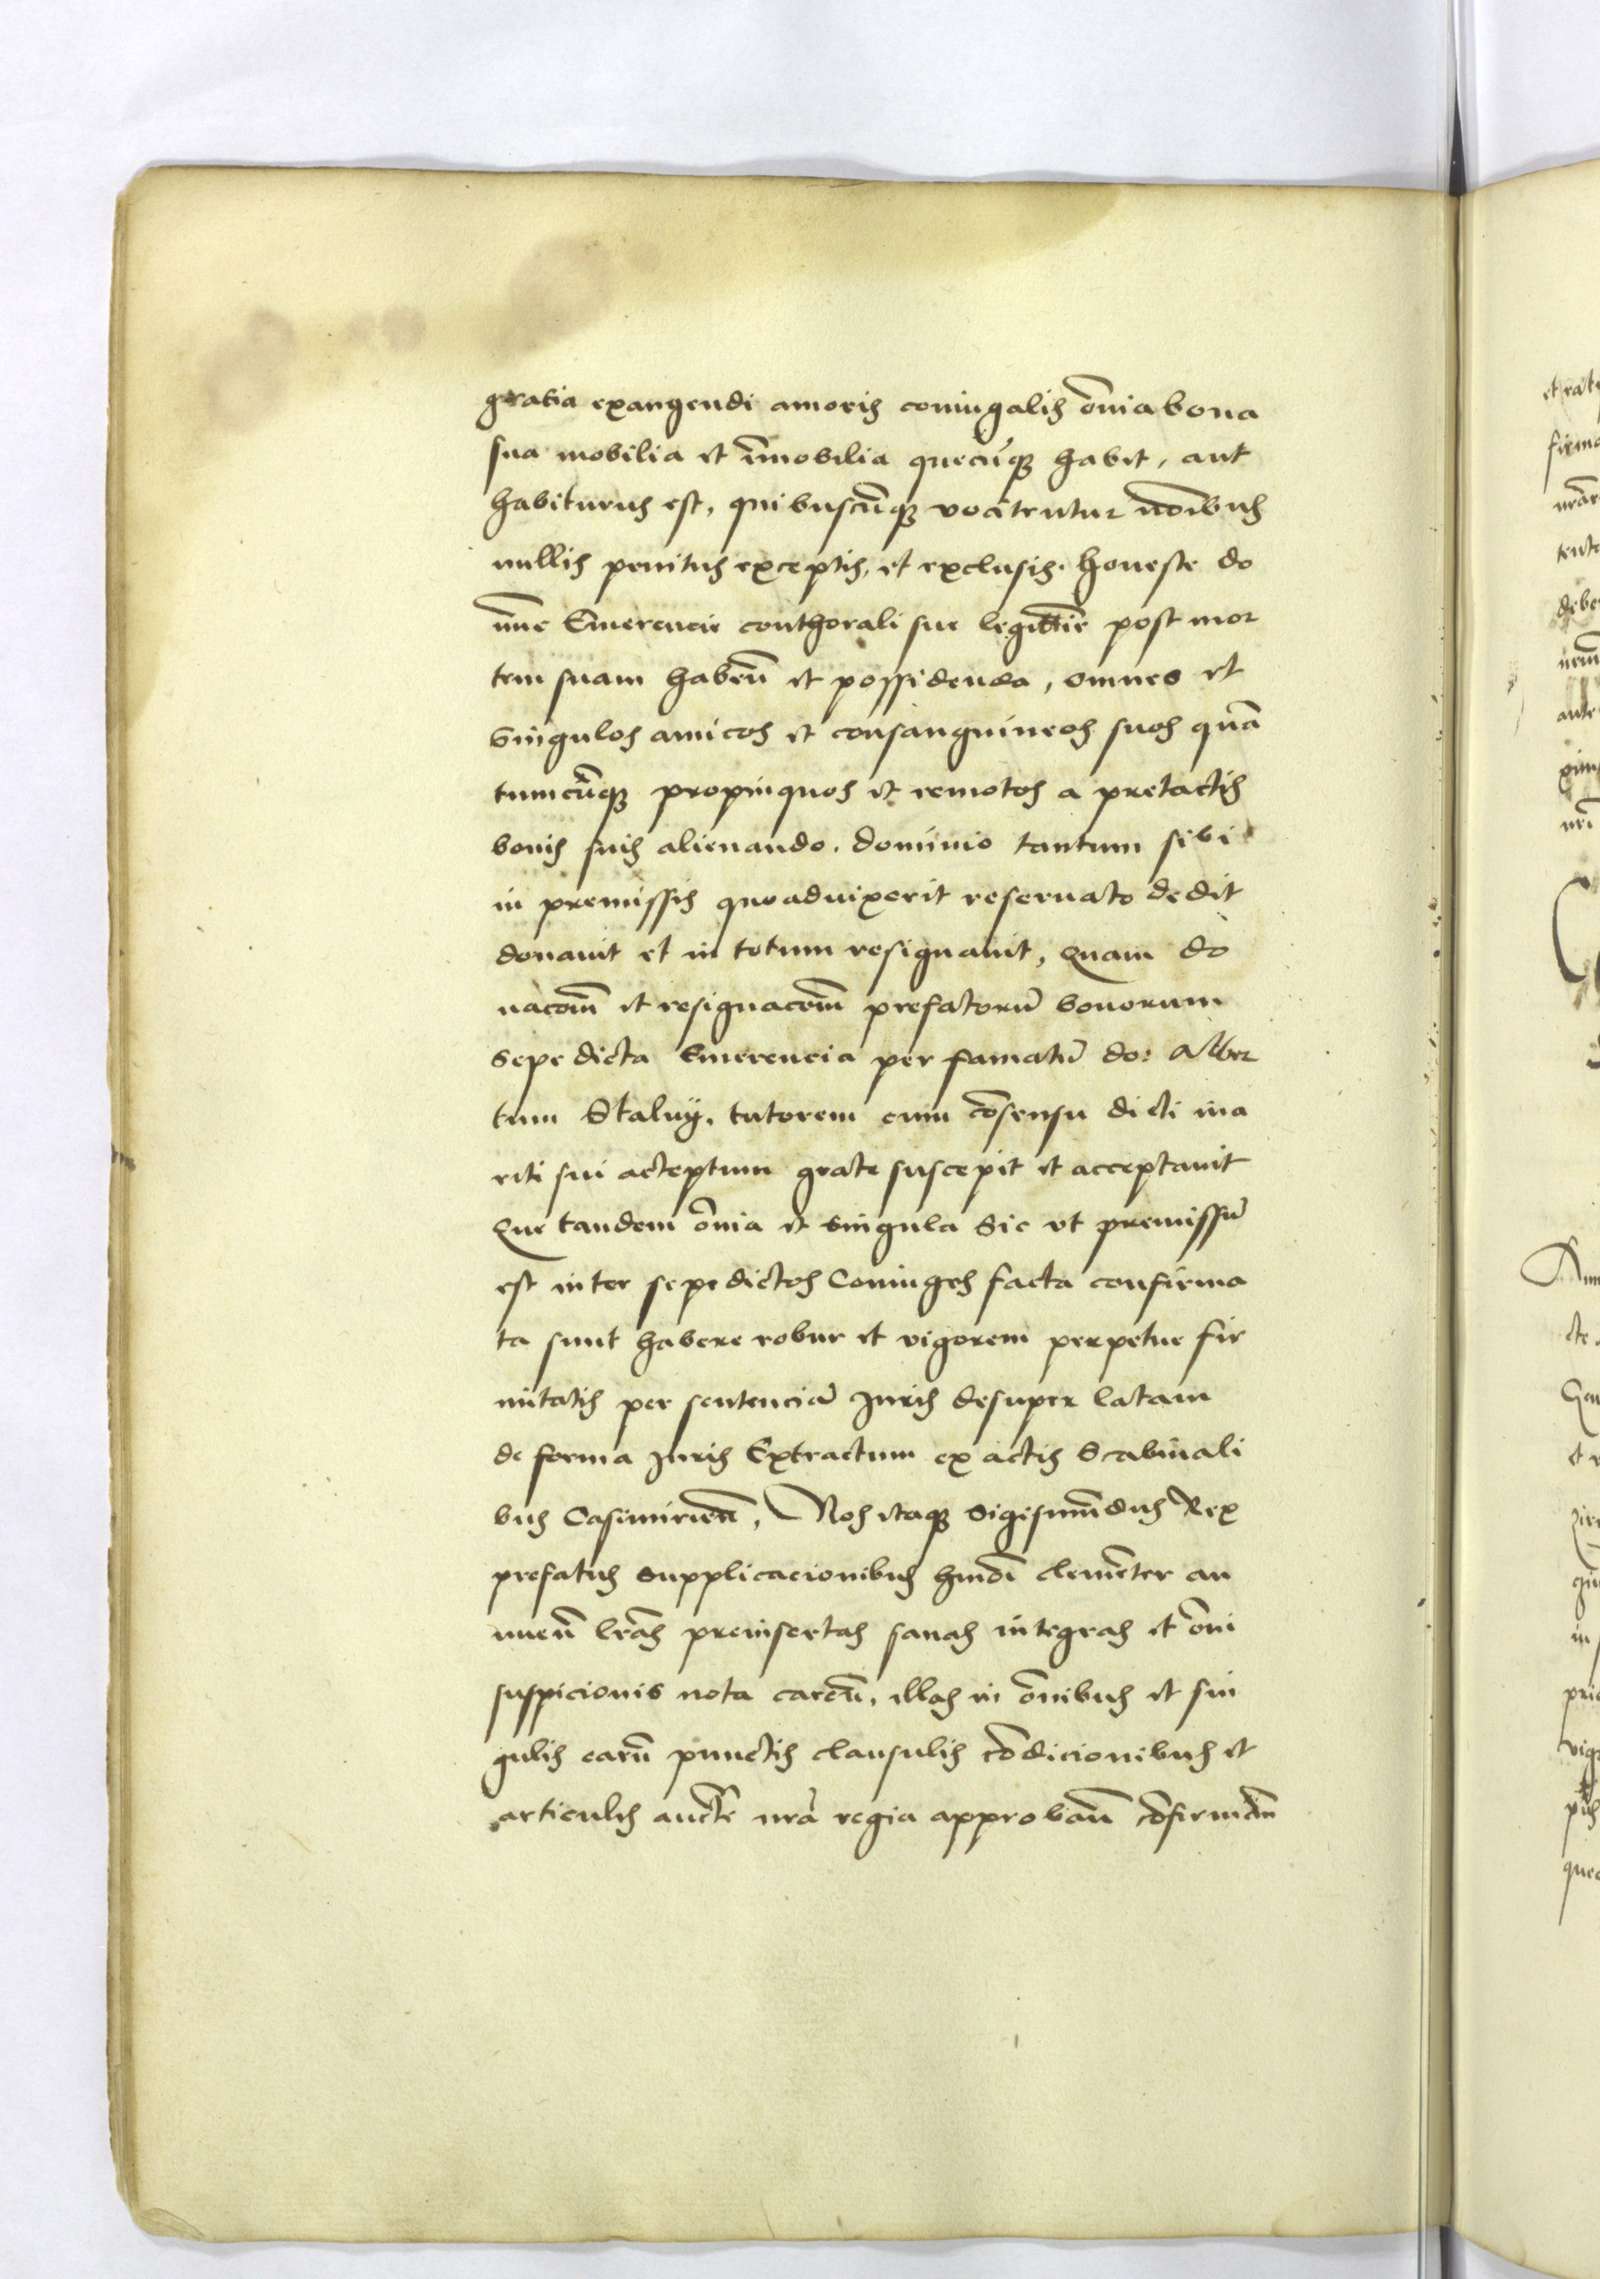 gratia exaugendi amoris coniugalis o̅nia bona
sua mobilia et i̅mobilia quecu̅q̨ habet, aut
habiturus est, quibuscu̅q̨ vocitentur no̅ibus
nullis penitus exceptis, et exclusis. honeste do
mi̅e Emerencie conthorali sue legitti̅e post mor
tem suam habe̅n̅ et possidenda, omnes et
singulos amicos et consanguineos suos qua̅
tumcu̅q̨ propinquos et remotos a pretactis
bonis suis alienando. dominio tantum sibi
in premissis quoaduixerit reseruato dedit
donauit et in totum resignauit, Quam do
naco̅m et resignaco̅em prefatoru̅ bonorum
sepe dicta Emerencia per famatu̅ do: Alber
tum Skaluy, tutorem cum co̅sensu dicti ma
riti sui acceptum grate suscepit et acceptauit
Que tandem o̅nia et singula sic vt premissu̅
est inter sepe dictos Coniuges facta confirma
ta sunt habere robur et vigorem perpetue fir
mitatis per sentencia̅ Juris desuper latam
de forma Juris Extractum ex actis Scabinali
bus Casimirien̅, Nos itaq̨ Sigismu̅dus Rex
prefatus supplicacionibus hmo̅i cleme̅ter an
nuen̅ lr̅as preinsertas sanas integras et o̅ni
suspicionis nota caren̅, illas in o̅nibus et sin
gulis earu̅ punctis clausulis co̅dicionibus et
articulis aucte̅ nr̅a regia approban̅ co̅firman̅